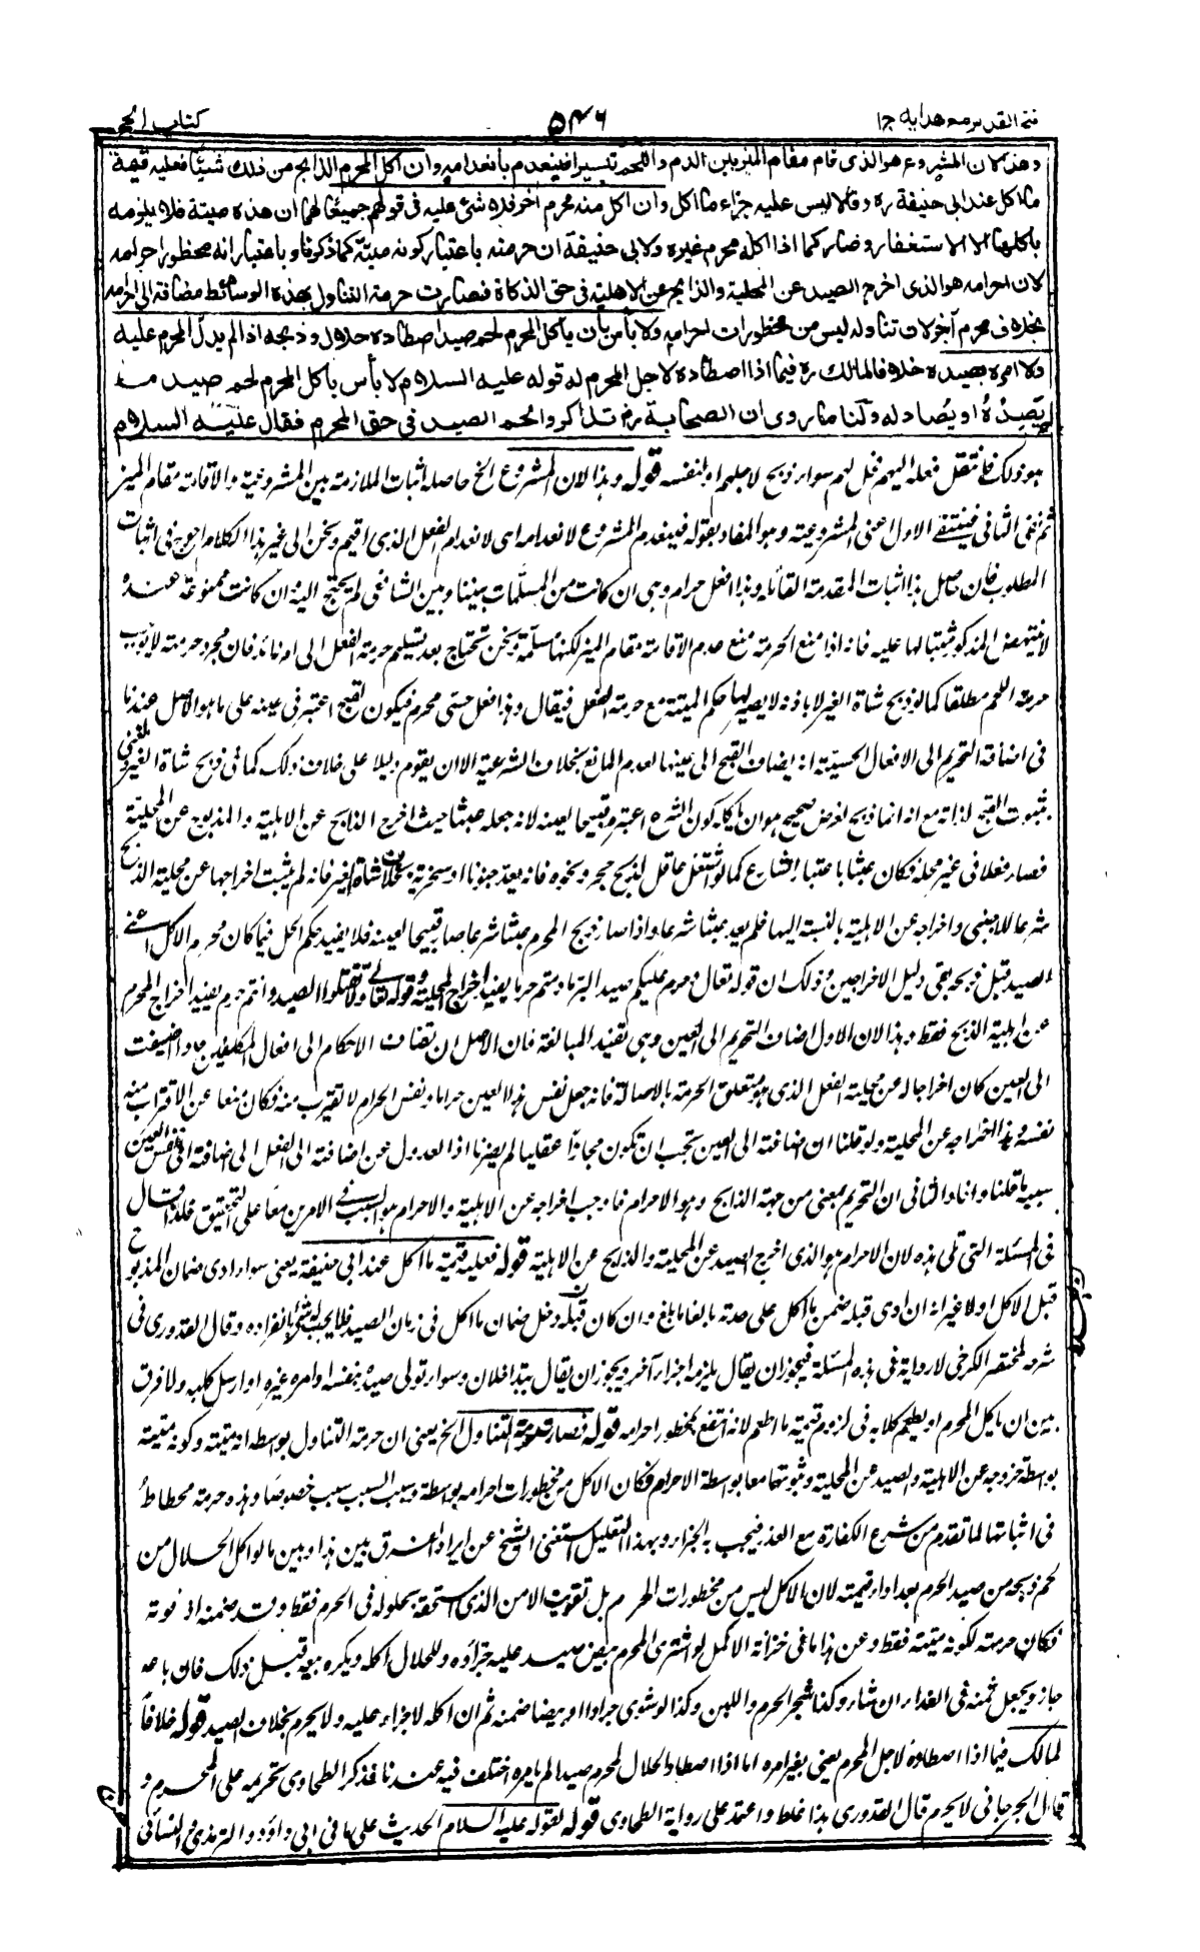 فتح القدير مع هدايه ج١ ٥٤٦ كتاب الحج
وهذا لان المشروع هو الذى قام مقام الميز بين الدم واللحم تيسيرا فينعدم بانعدامه وان اكل المحرم الذابح من ذلك شيئا فعليه قيمة
ما اكل عند ابى حنيفة ره وقالا ليس عليه جزاء ما اكل وان اكل منه محرم آخر فلا شئ عليه فى قولهم جميعا لهما ان هذه ميتة فلا يلزمه
باكلها الا الاستغفار وصار كما اذا اكله محرم غيره ولابى حنيفة ان حرمته باعتبار كونه ميتة كما ذكرنا وباعتبار انه محظور احرامه
لان احرامه هو الذى اخرج الصيد عن المحلية والذابح عن الاهلية فى حق الذكاة فصارت حرمة التناول بهذه الوسائط مضافة الى احرامه
بخلاف محرم آخر لان تناوله ليس من محظورات احرامه ولا بأس بان يأكل المحرم لحم صيد اصطاده حلال وذبحه اذا لم يدل المحرم عليه
ولا امره بصيده خلافا لمالك ره فيما اذا اصطاده لاجل المحرم له قوله عليه السلام لا بأس باكل المحرم لحم صيد ما لم
يصيده او يصاد له ولنا ما روى ان الصحابة رض تذاكروا لحم الصيد فى حق المحرم فقال عليه السلام
فانتقل فعله اليهم فحل لهم سواء ذبح لاجلهم او لنفسه قوله وهذا لان المشروع الخ حاصله اثبات الملازمة بين المشروعية والاقامة مقام الميز
ثم نفى الثانى فينتفى الاول اعنى المشروعية وهو المفاد بقوله فينعدم المشروع لانعدامه اى لانعدام الفعل الذى اقيم ونحن الى غير هذا الكلام احوج فى اثبات
المطلوب فان حاصل هذا اثبات المقدمة القائلة وهذا فعل حرام وهى ان كانت من المسلمات بيننا وبين الشافعى لم يحتج اليه وان كانت ممنوعة عنده
لا ينتهض المذكور مثبتا لها عليه فانه اذا منع الحرمة منع عدم الاقامة مقام الميز لكنها مسلمة ونحن نحتاج بعد تسليم حرمة الفعل الى امر زائد فان مجرد حرمته لا يوجب
حرمة اللحم مطلقا كما لو ذبح شاة الغير لا باذنه لا يصير لها حكم الميتة مع حرمة الفعل فيقال وهذا فعل حسى محرم فيكون القبح اعتبر فى عينه على ما هو الاصل عندنا
فى اضافة التحريم الى الافعال الحسية انه يضاف القبح الى عينها لعدم المانع بخلاف الشرعية الا ان يقوم دليل على خلاف ذلك كما فى ذبح شاة الغير
ثبوت القبح لذاته مع انه انما ذبح لغرض صحيح هو ان يأكله كون الشرع اعتبره قبيحا لعينه لانه جعله عبثا حيث اخرج الذابح عن الاهلية والمذبوح عن المحلية
فصار فعلا فى غير محله فكان عبثا باعتبار الشارع كما لو اشتغل عاقل بذبح حجر ونحوه فانه يعد جنونا او سخرية بخلاف شاة الغير فانه لم يثبت اخراجها عن محلية الذبح
شرعا للاجنبى واخراجه عن الاهلية بالنسبة اليها فلم يعد عبثا شرعا واذا صار ذبح المحرم عبثا شرعا صار قبيحا لعينه فلا يفيد حكم الحل فيما كان محرم الاكل اعنى
الصيد قبل ذبحه بقى دليل الاخراجين وذلك ان قوله تعالى وحرم عليكم صيد البر ما دمتم حرما يفيد اخراج المحلية وقوله تعالى لا تقتلوا الصيد وانتم حرم يفيد اخراج المحرم
عن اهلية الذبح فقط وهذا لان الاول اضاف التحريم الى العين وهى تفيد المبالغة فان الاصل ان تضاف الاحكام الى افعال المكلفين فاذا اضيفت
الى العين كان اخراجا له عن محلية الفعل الذى هو متعلق الحرمة بالاصالة فانه جعل نفس هذا العين حراما ونفس الحرام لا يقترب منه فكان منعا عن الاقتراب منه
نفسه وهذا اخراجه عن المحلية ولو قلنا ان اضافته الى العين تجب ان تكون مجازا عقليا لم يضرنا اذ العدول عن اضافته الى الفعل الى اضافته الى نفس العين
سببه ما قلنا وافاد الثانى ان التحريم بمعنى من جهة الذابح وهو الاحرام فاوجب اخراجه عن الاهلية والاحرام هو السبب فى الامرين معا على التحقيق فلذا قال
فى المسئلة التى تلى هذه لان الاحرام هو الذى اخرج الصيد عن المحلية والذابح عن الاهلية قوله فعليه قيمة ما اكل عند ابى حنيفة يعنى سواء ادى ضمان المذبوح
قبل الاكل او لا غير انه ان ادى قبله ضمن ما اكل على حدته بالغا ما بلغ وان كان قبله دخل ضمان ما اكل فى ضمان الصيد فلا يجب له شئ بانفراده وقال القدورى فى
شرحه لمختصر الكرخى لا رواية فى هذه المسئلة فيجوز ان يقال يلزمه جزاء آخر ويجوز ان يقال يتداخلان وسواء تولى صيده بنفسه او امره غيره او ارسل كلبه ولا فرق
بين ان يأكل المحرم او يطعم كلابه فى لزوم قيمة ما اطعم لانه انتفع بمحظور احرامه قوله فصارت حرمة التناول الخ يعنى ان حرمة التناول بواسطة انه ميتة وكونه ميتة
بواسطة خروجه عن الاهلية والصيد عن المحلية وثبوتهما معا بواسطة الاحرام فكان الاكل من محظورات احرامه بواسطة وسبب السبب سبب خصوصا وهذه حرمة محطاط
فى اثباتها لما تقدم من شرع الكفارة مع العذر فيجب به الجزاء وبهذا التعليل استغنى الشيخ عن ايراد الفرق بين هذا وبين ما لو اكل الحلال من
لحم ذبحه من صيد الحرم بعد اداء قيمته لان الاكل ليس من محظورات الحرم بل تفويت الامن الذى استحقه بحلوله فى الحرم فقط وقد ضمنه اذ فوته
فكان حرمته لكونه ميتة فقط وعن هذا ما فى خزانة الاكمل لو اشترى المحرم بيض صيد عليه جزاؤه وللحلال اكله ويكره بيعه قبل ذلك فان باعه
جاز ويجعل ثمنه فى الفداء ان شاء وكذا شجر الحرم واللبن وكذا لو شوى جرادا او بيضا ضمنه ثم ان اكله لا جزاء عليه ولا يحرم بخلاف الصيد قوله خلافا
لمالك فيما اذا اصطاده لاجل المحرم يعنى بغير امره اما اذا اصطاد الحلال لمحرم صيدا لم يامره اختلف فيه عندنا فذكر الطحاوى تحريمه على المحرم و
قال الجرجانى لا يحرم قال القدورى هذا غلط واعتمد على رواية الطحاوى قوله لقوله عليه السلام الحديث على ما فى ابى داؤد والترمذى والنسائى